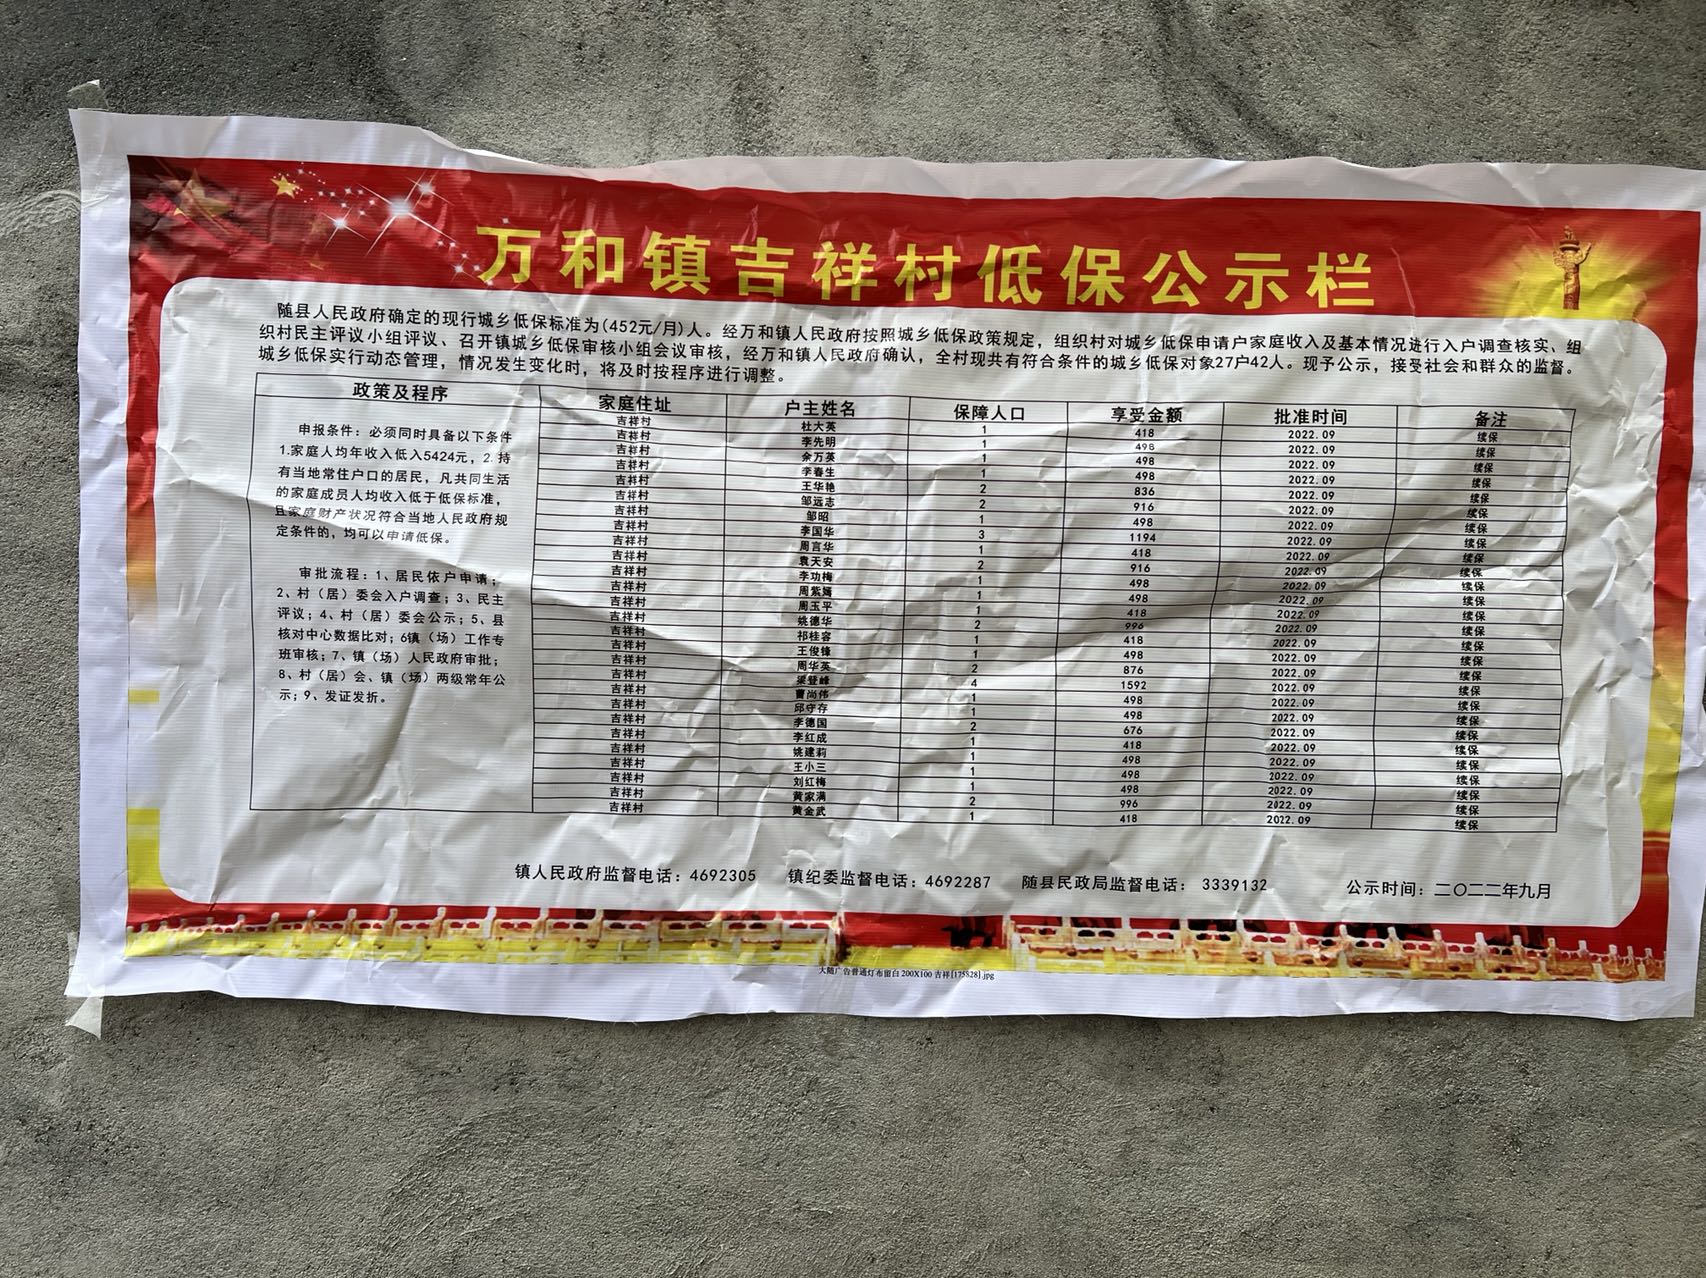 万和镇吉祥村低保公示栏
随县人民政府确定的现行城乡低保标准为(452元/月)人。经万和镇人民政府按照城乡低保政策规定，组织村对城乡低保申请户家庭收入及基本情况进行入户调查核实、组
织村民主评议小组评议、召开镇城乡低保审核小组会议审核，经万和镇人民政府确认，全村现共有符合条件的城乡低保对象27户42人。现予公示，接受社会和群众的监督。
城乡低保实行动态管理，情况发生变化时，将及时按程序进行调整。
政策及程序
申报条件：必须同时具备以下条件
1.家庭人均年收入低入5424元，2.持
有当地常住户口的居民，凡共同生活
的家庭成员人均收入低于低保标准，
且家庭财产状况符合当地人民政府规
定条件的，均可以申请低保。
审批流程：1、居民依户申请；
2、村（居）委会入户调查；3、民主
评议；4、村（居）委会公示；5、县
核对中心数据比对；6镇（场）工作专
班审核；7、镇（场）人民政府审批；
8、村（居）会、镇（场）两级常年公
示；9、发证发折。
家庭住址 户主姓名 保障人口 享受金额 批准时间 备注
吉祥村 杜大英 1 418 2022.09 续保
吉祥村 李先明 1 498 2022.09 续保
吉祥村 余万英 1 498 2022.09 续保
吉祥村 李春生 1 498 2022.09 续保
吉祥村 王华艳 2 836 2022.09 续保
吉祥村 邹远志 2 916 2022.09 续保
吉祥村 邹昭 1 498 2022.09 续保
吉祥村 李国华 3 1194 2022.09 续保
吉祥村 周言华 1 418 2022.09 续保
吉祥村 袁天安 2 916 2022.09 续保
吉祥村 李功梅 1 498 2022.09 续保
吉祥村 周紫嫣 1 498 2022.09 续保
吉祥村 周玉平 1 418 2022.09 续保
吉祥村 姚德华 2 996 2022.09 续保
吉祥村 祁桂容 1 418 2022.09 续保
吉祥村 王俊锋 1 498 2022.09 续保
吉祥村 周华英 2 876 2022.09 续保
吉祥村 梁登峰 4 1592 2022.09 续保
吉祥村 曹尚伟 1 498 2022.09 续保
吉祥村 邱守存 1 498 2022.09 续保
吉祥村 李德国 2 676 2022.09 续保
吉祥村 李红成 1 418 2022.09 续保
吉祥村 姚建莉 1 498 2022.09 续保
吉祥村 王小三 1 498 2022.09 续保
吉祥村 刘红梅 1 498 2022.09 续保
吉祥村 黄家满 2 996 2022.09 续保
吉祥村 黄金武 1 418 2022.09 续保
镇人民政府监督电话：4692305 镇纪委监督电话：4692287 随县民政局监督电话：3339132 公示时间：二〇二二年九月
大随广告普通灯布留白200X100 吉祥[175828].jpg